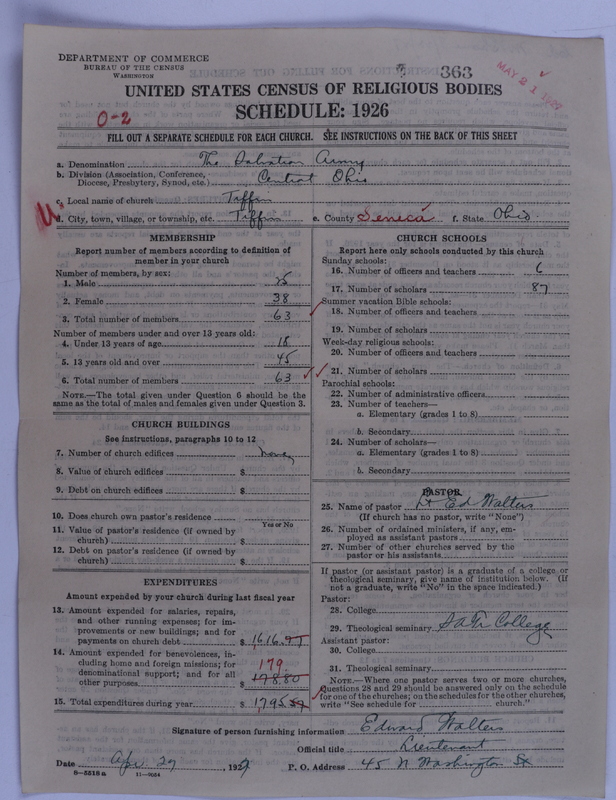 DEPARTMENT OF COMMERCE
BUREAU OF THE CENSUS
WASHINGTON
363
MAY 21 1927
UNITED STATES CENSUS OF RELIGIOUS BODIES
SCHEDULE: 1926
0-2
FILL OUT A SEPARATE SCHEDULE FOR EACH CHURCH. SEE INSTRUCTIONS ON THE BACK OF THIS SHEET
a. Denomination The Salvation Army
b. Division (Association, Conference, Diocese, Presbytery, Synod, etc.) Central Ohio
c. Local name of church Tiffin
d. City, town, village, or township, etc. Tiffin e. County Seneca f. State Ohio
MEMBERSHIP
Report number of members according to definition of
member in your church
Number of members, by sex:
1. Male 25
2. Female 38
3. Total number of members 63
Number of members under and over 13 years old:
4. Under 13 years of age 18
5. 13 years old and over 45
6. Total number of members 63
NOTE.—The total given under Question 6 should be
same as the total of males and females given under Question 3.
CHURCH BUILDINGS
See instructions, paragraphs 10 to 12
7. Number of church edifices none
8. Value of church edifices $
9. Debt on church edifices $
10. Does church own pastor's residence
Yes or No
11. Value of pastor's residence (if owned by
church) $
12. Debt on pastor's residence (if owned by
church) $
EXPENDITURES
Amount expended by your church during last fiscal year
13. Amount expended for salaries, repairs,
and other running expenses; for im-
provements or new buildings; and for
payments on church debt $ 1616.
14. Amount expended for benevolences, in-
cluding home and foreign missions; for
denominational support; and for all
other purposes $ 179
178.80
15. Total expenditures during year $ 1795
CHURCH SCHOOLS
Report here only schools conducted by this church
Sunday schools:
16. Number of officers and teachers 6
17. Number of scholars 87
Summer vacation Bible schools:
18. Number of officers and teachers
19. Number of scholars
Week-day religious schools:
20. Number of officers and teachers
21. Number of scholars
Parochial schools:
22. Number of administrative officers
23. Number of teachers—
a. Elementary (grades 1 to 8)
b. Secondary
24. Number of scholars—
a. Elementary (grades 1 to 8)
b. Secondary
PASTOR
25. Name of pastor Lt Ed Walters
(If church has no pastor, write "None")
26. Number of ordained ministers, if any, em-
ployed as assistant pastors
27. Number of other churches served by the
pastor or his assistants
If pastor (or assistant pastor) is a graduate of a college or
theological seminary, give name of institution below. (If
not a graduate, write "No" in the space indicated.)
Pastor:
28. College
29. Theological seminary College
Assistant pastor:
30. College
31. Theological seminary
NOTE.—Where one pastor serves two or more churches,
Questions 28 and 29 should be answered only on the schedule
for one of the churches; on the schedules for the other churches,
write "See schedule for church."
Signature of person furnishing information Edward Walters
Official title Lieutenant
Date Apr 29, 1927 P. O. Address 45 N Washington St
8—5518 a 11—9054